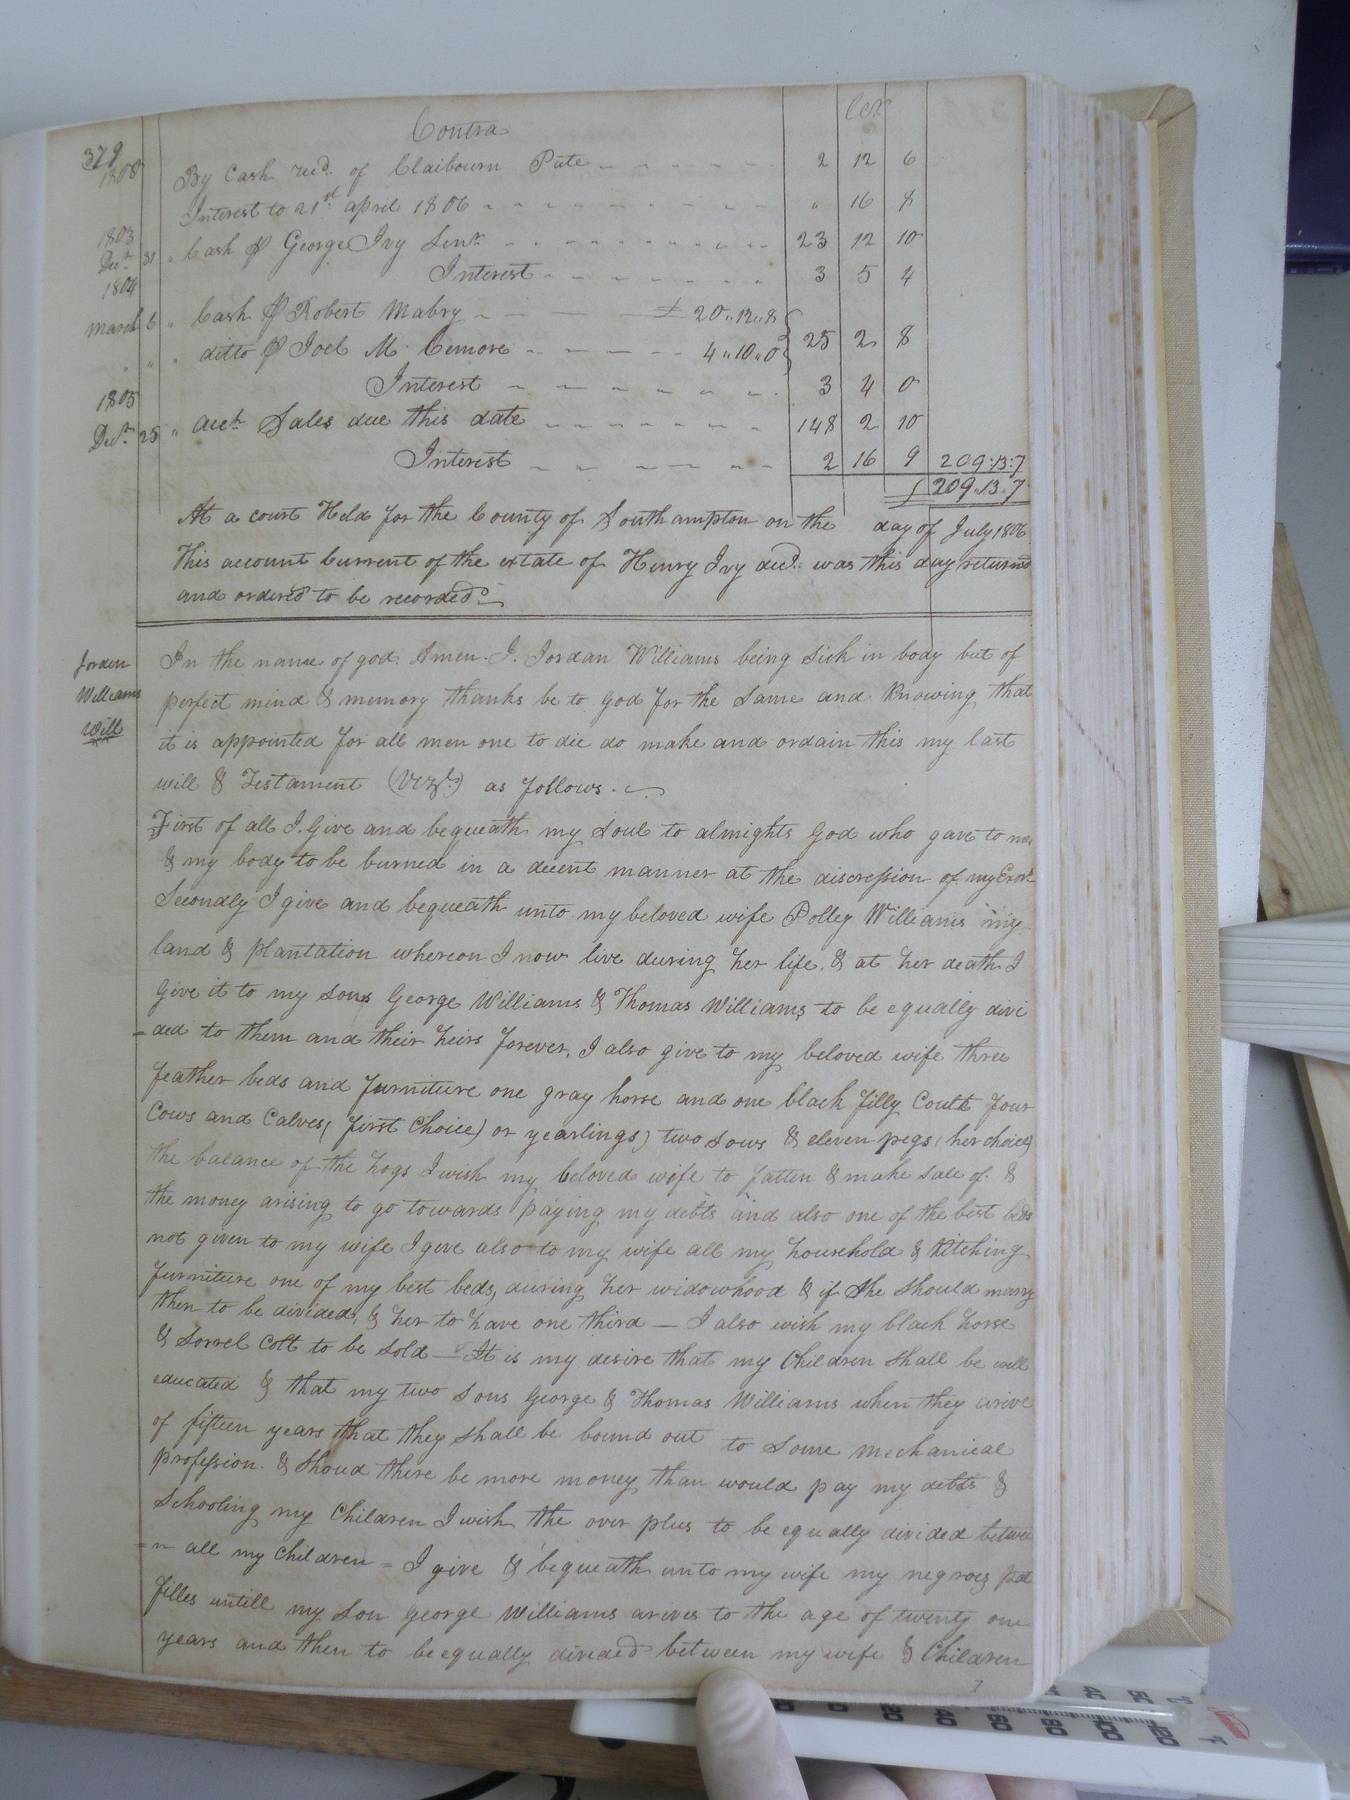 379
Contra
1808 By Cash recd. of Claibourn Pate 2 12 6
Interest to 21st april 1806 " 16 8
1803 Decr. 31 " Cash George Ivy Senr. 23 12 10
Interest 3 5 4
1804
March 6 " Cash Robert Mabry £ 20,,12,,8
" " ditto Joel M. Cemore 4,,10,,0 25 2 8
Interest 3 4 0
1805
Decr. 25 " acct. Sales due this date 148 2 10
Interest 2 16 9 209:13:7
£ 209.13.7
At a court Held for the County of Southampton on the day of July 1806
This account Current of the estate of Henry Ivy decd. was this day returned
and ordered to be recorded
Jorden Williams Will
In the name of god. Amen. I. Jordan Williams being Sick in body but of
perfect mind & memory thanks be to god for the Same and Knowing that
it is appointed for all men one to die do make and ordain this my last
will & Testament (Vizt.) as follows.
First of all I. Give and bequeath my Soul to almights God who gave to me
& my body to be burned in a decent manner at the discression of my Exors.
Secondly I give and bequeath unto my beloved wife Polley Williams my
land & plantation whereon I now live during her life. & at her death I
Give it to my Sons George Williams & Thomas Williams to be equally divi
=ded to them and their heirs forever, I also give to my beloved wife three
feather beds and furniture one gray horse and one black filly Coult four
Cows and Calves, (first Choice) or yearlings) two Sows & eleven pegs (her choice)
the balance of the hogs I wish my beloved wife to fatten & make Sale of. &
the money arising to go towards paying my debts and also one of the best beds
not given to my wife I give also to my wife all my household & Kitching
furniture one of my best beds, during her widowhood & if She Should marry
then to be divided, & her to have one third — I also wish my black horse
& Sorrel Colt to be Sold — It is my desire that my Children Shall be well
educated & that my two Sons George & Thomas Williams when they arive
of fifteen years that they Shall be bound out to Some mechanical
profession. & Shoud there be more money than would pay my debts &
Schooling my Children I wish the over plus to be equally divided betwee
=n all my Children = I give & bequeath unto my wife my negroes
untill my Son George Williams arives to the age of twenty one
years and then to be equally divided between my wife & Children